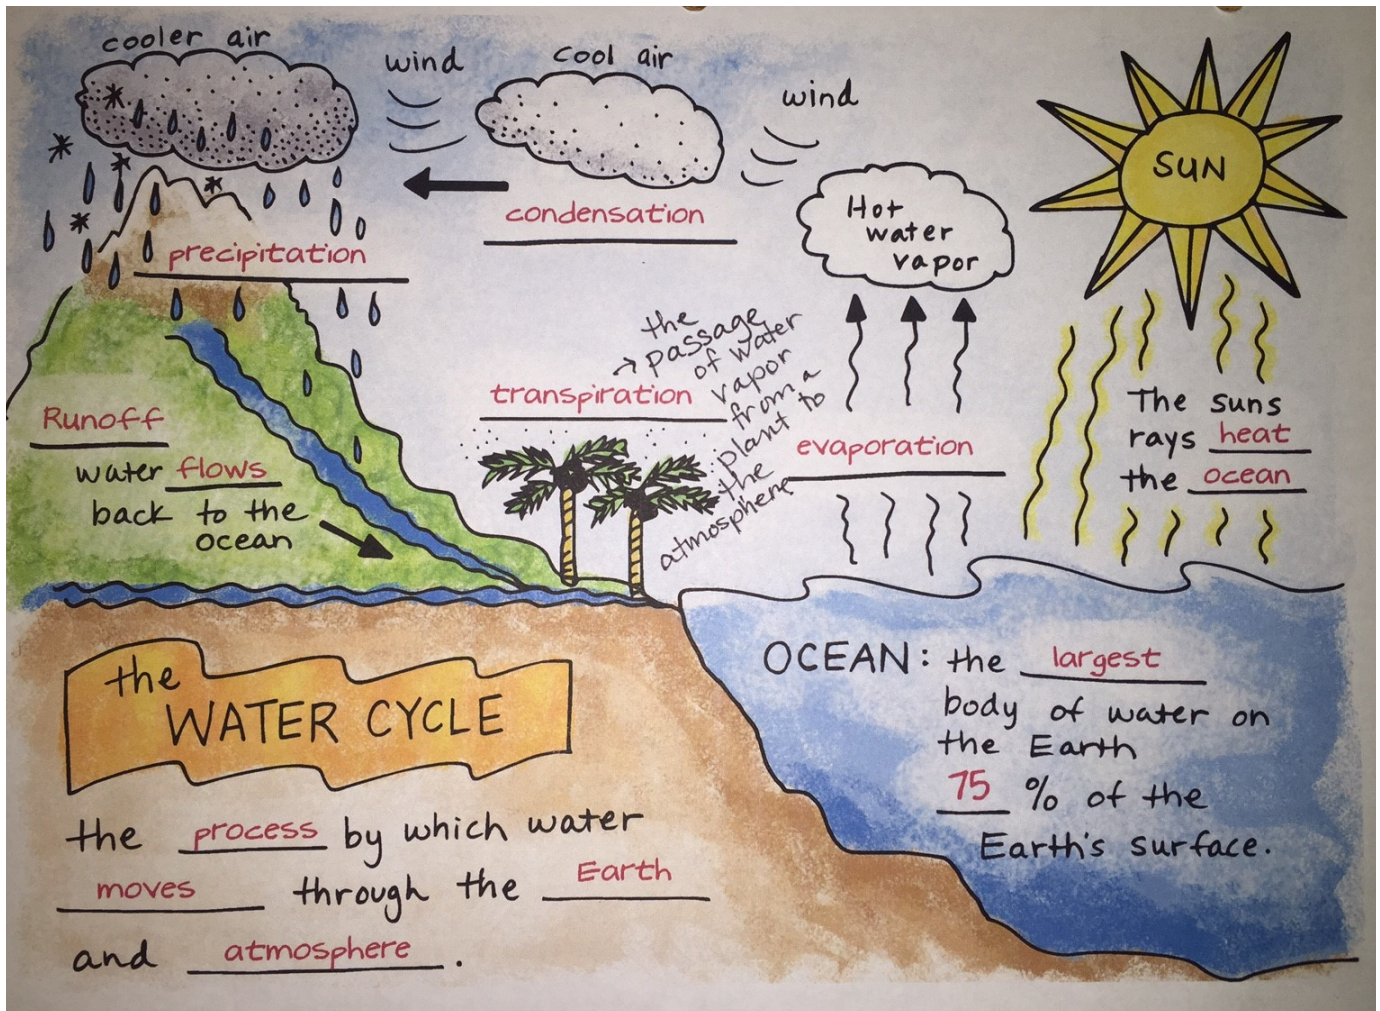 cooler air
wind
cool air
wind
SUN
Hot
water
vapor
condensation
precipitation
the
→ passage
of water
vapor
from a
plant to
the
atmosphere
transpiration
evaporation
The suns
rays heat
the ocean
Runoff
water flows
back to the
ocean
the
WATER CYCLE
the process by which water
moves through the Earth
and atmosphere.
OCEAN: the largest
body of water on
the Earth
75 % of the
Earth's surface.